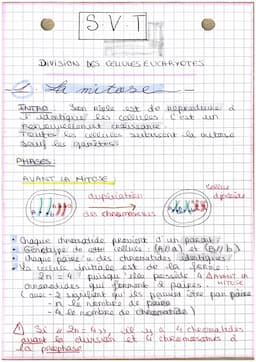 S.V.T
DIVISION DES CELLULES EUCARYOTES
1. La mitose
INTRO : Son rôle est de reproduire à
l'identique les cellules. C'est un
renouvellement
Toutes les cellules subissent la mitose
sauf les gamètes.
PHASES :
AVANT LA MITOSE
duplication
des chromosomes
Cellule
Chaque chromatide provient d'un parent
Génotype de cette cellule : (A//a) et (B//b)
Chaque paire a des chromatides identiques
La cellule initiale est de la forme :
2n = 4 puisqu'elle possède 4
chromatides qui forment 2 paires.
AVANT LA
MITOSE
(avec - 2 signifiant qu'ils peuvent être par paire
- n le nombre de paires
- 4 le nombre de chromatides)
Si « 2n = 4 », il y a 4 chromatides
avant la division et 4 chromosomes à
la prophase